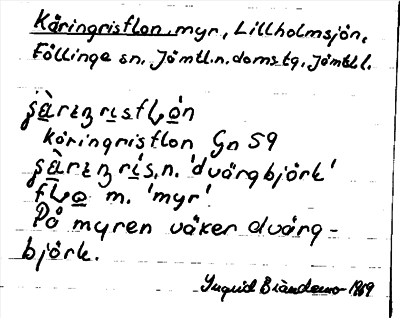 Käringrisflon, myr, Lillholmsjön,
Föllinge sn, Jämtl.n.domstg, Jämtl l.
käringrisflon Gn 59
n. 'dvärgbjörk'
m. 'myr'.
På myren växer dvärg-
björk.
Ingrid 1969